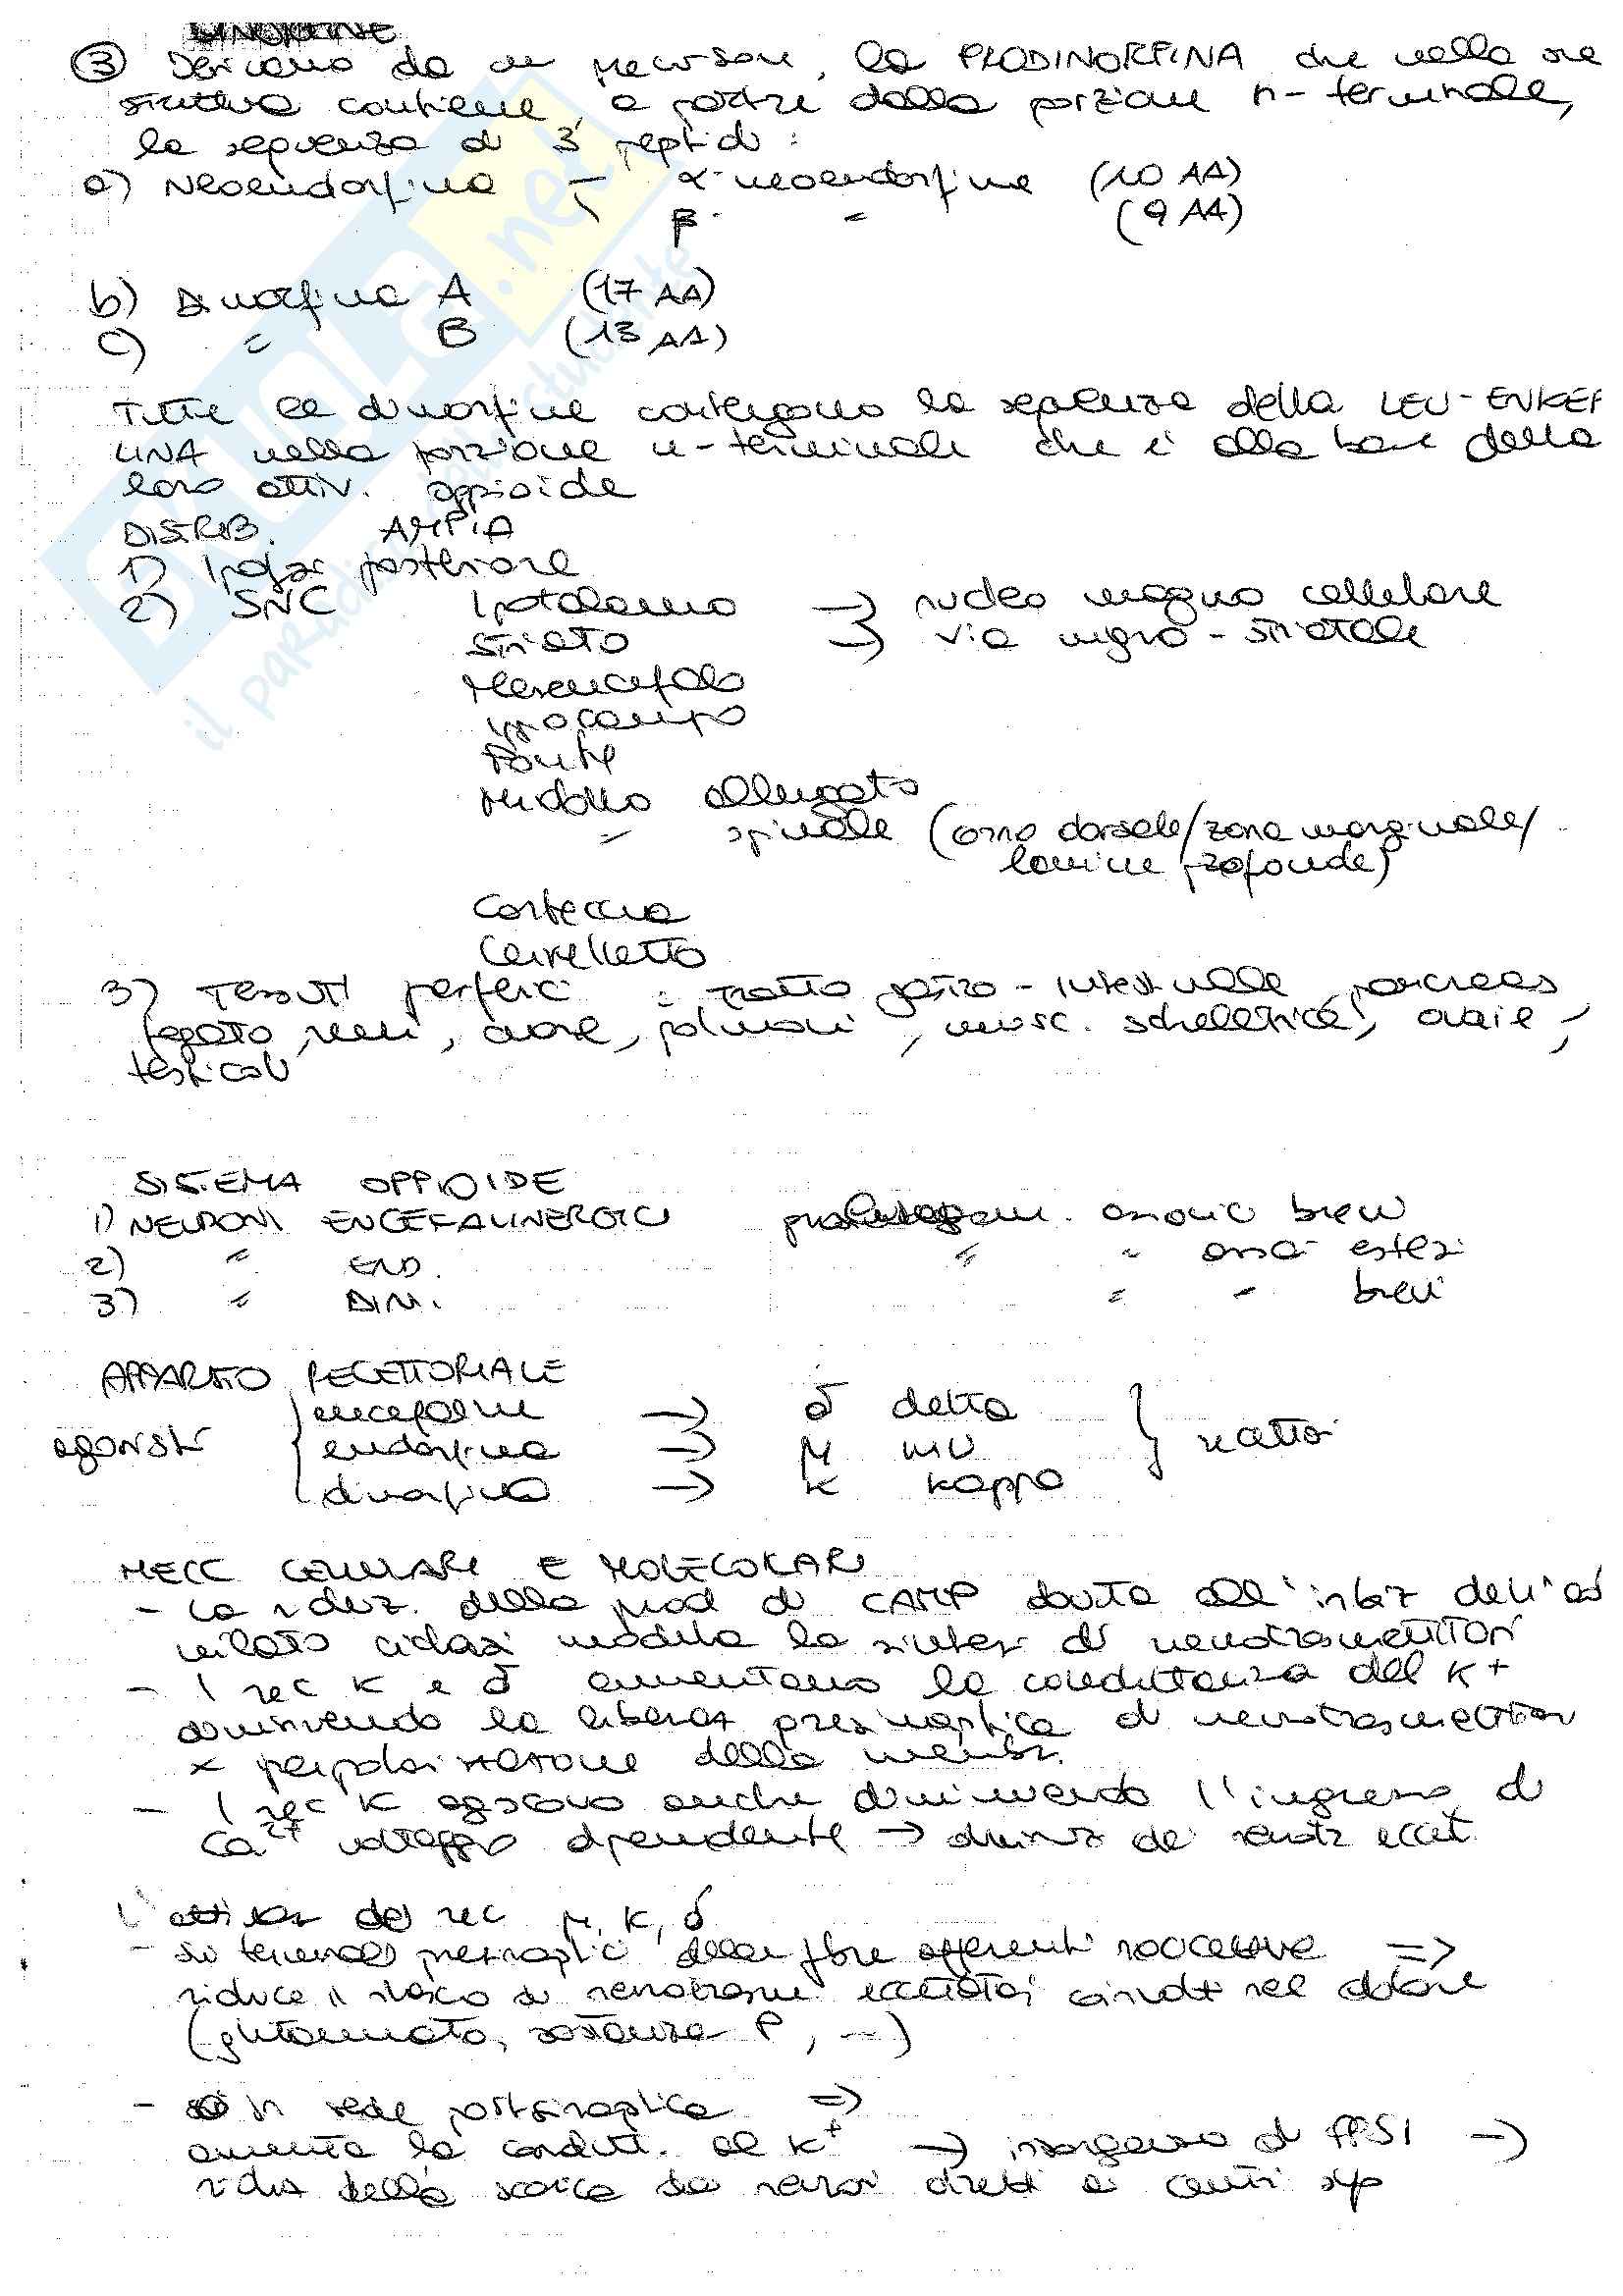 DINORFINE
③ Derivano da un precursore, la PRODINORFINA che nella sua
struttura contiene, a partire dalla porzione n-terminale,
la sequenza di 3 peptidi:
a) Neoendorfina - α-neoendorfina (10 AA)
β- " (9 AA)
b) Dinorfina A (17 AA)
c) " B (13 AA)
Tutte le dinorfine contengono la sequenza della LEU-ENKEF
LINA nella porzione n-terminale che è alla base della
loro attiv. oppioide
DISTRIB. AMPIA
1) Ipofisi posteriore
2) SNC Ipotalamo → nucleo magno cellulare
Striato → via nigro-striatale
Mesencefalo
Ippocampo
Ponte
Midollo allungato
" spinale (corno dorsale/zona marginale/
lamine profonde)
Corteccia
Cervelletto
3) Tessuti periferici: tratto gastro-intestinale, pancreas
fegato, reni, cuore, polmoni, musc. scheletrica, ovaie,
testicoli
SISTEMA OPPIOIDE
1) NEURONI ENCEFALINERGICI prolungam. assonici brevi
2) " END. " " assai estesi
3) " DIN. " " brevi
APPARATO RECETTORIALE
agonisti encefaline → δ delta
endorfina → μ mu
dinorfina → κ kappa
MECC CELLULARI E MOLECOLARI
- La riduz. della prod di CAMP dovuta all'inibiz dell'ad
nilato ciclasi modula la sintesi di neurotrasmettitori
- I rec κ e δ aumentano la conduttanza del K+
diminuendo la liberaz presinaptica di neurotrasmettitori
x iperpolarizzazione della membr.
- I rec κ agiscono anche diminuendo l'ingresso di
Ca2+ voltaggio dipendente → diminuz dei neurotr eccit.
L'attivaz dei rec μ, κ, δ
- su terminali presinaptici delle fibre afferenti nocicettive ⇒
riduce il rilascio di neurotrasm. eccitatori coinvolti nel dolore
(glutammato, sostanza P, ...)
- in sede postsinaptica ⇒
aumenta la condutt. al K+ → insorgenza di PPSI →
riduz della scarica dei neuroni diretti ai centri sup